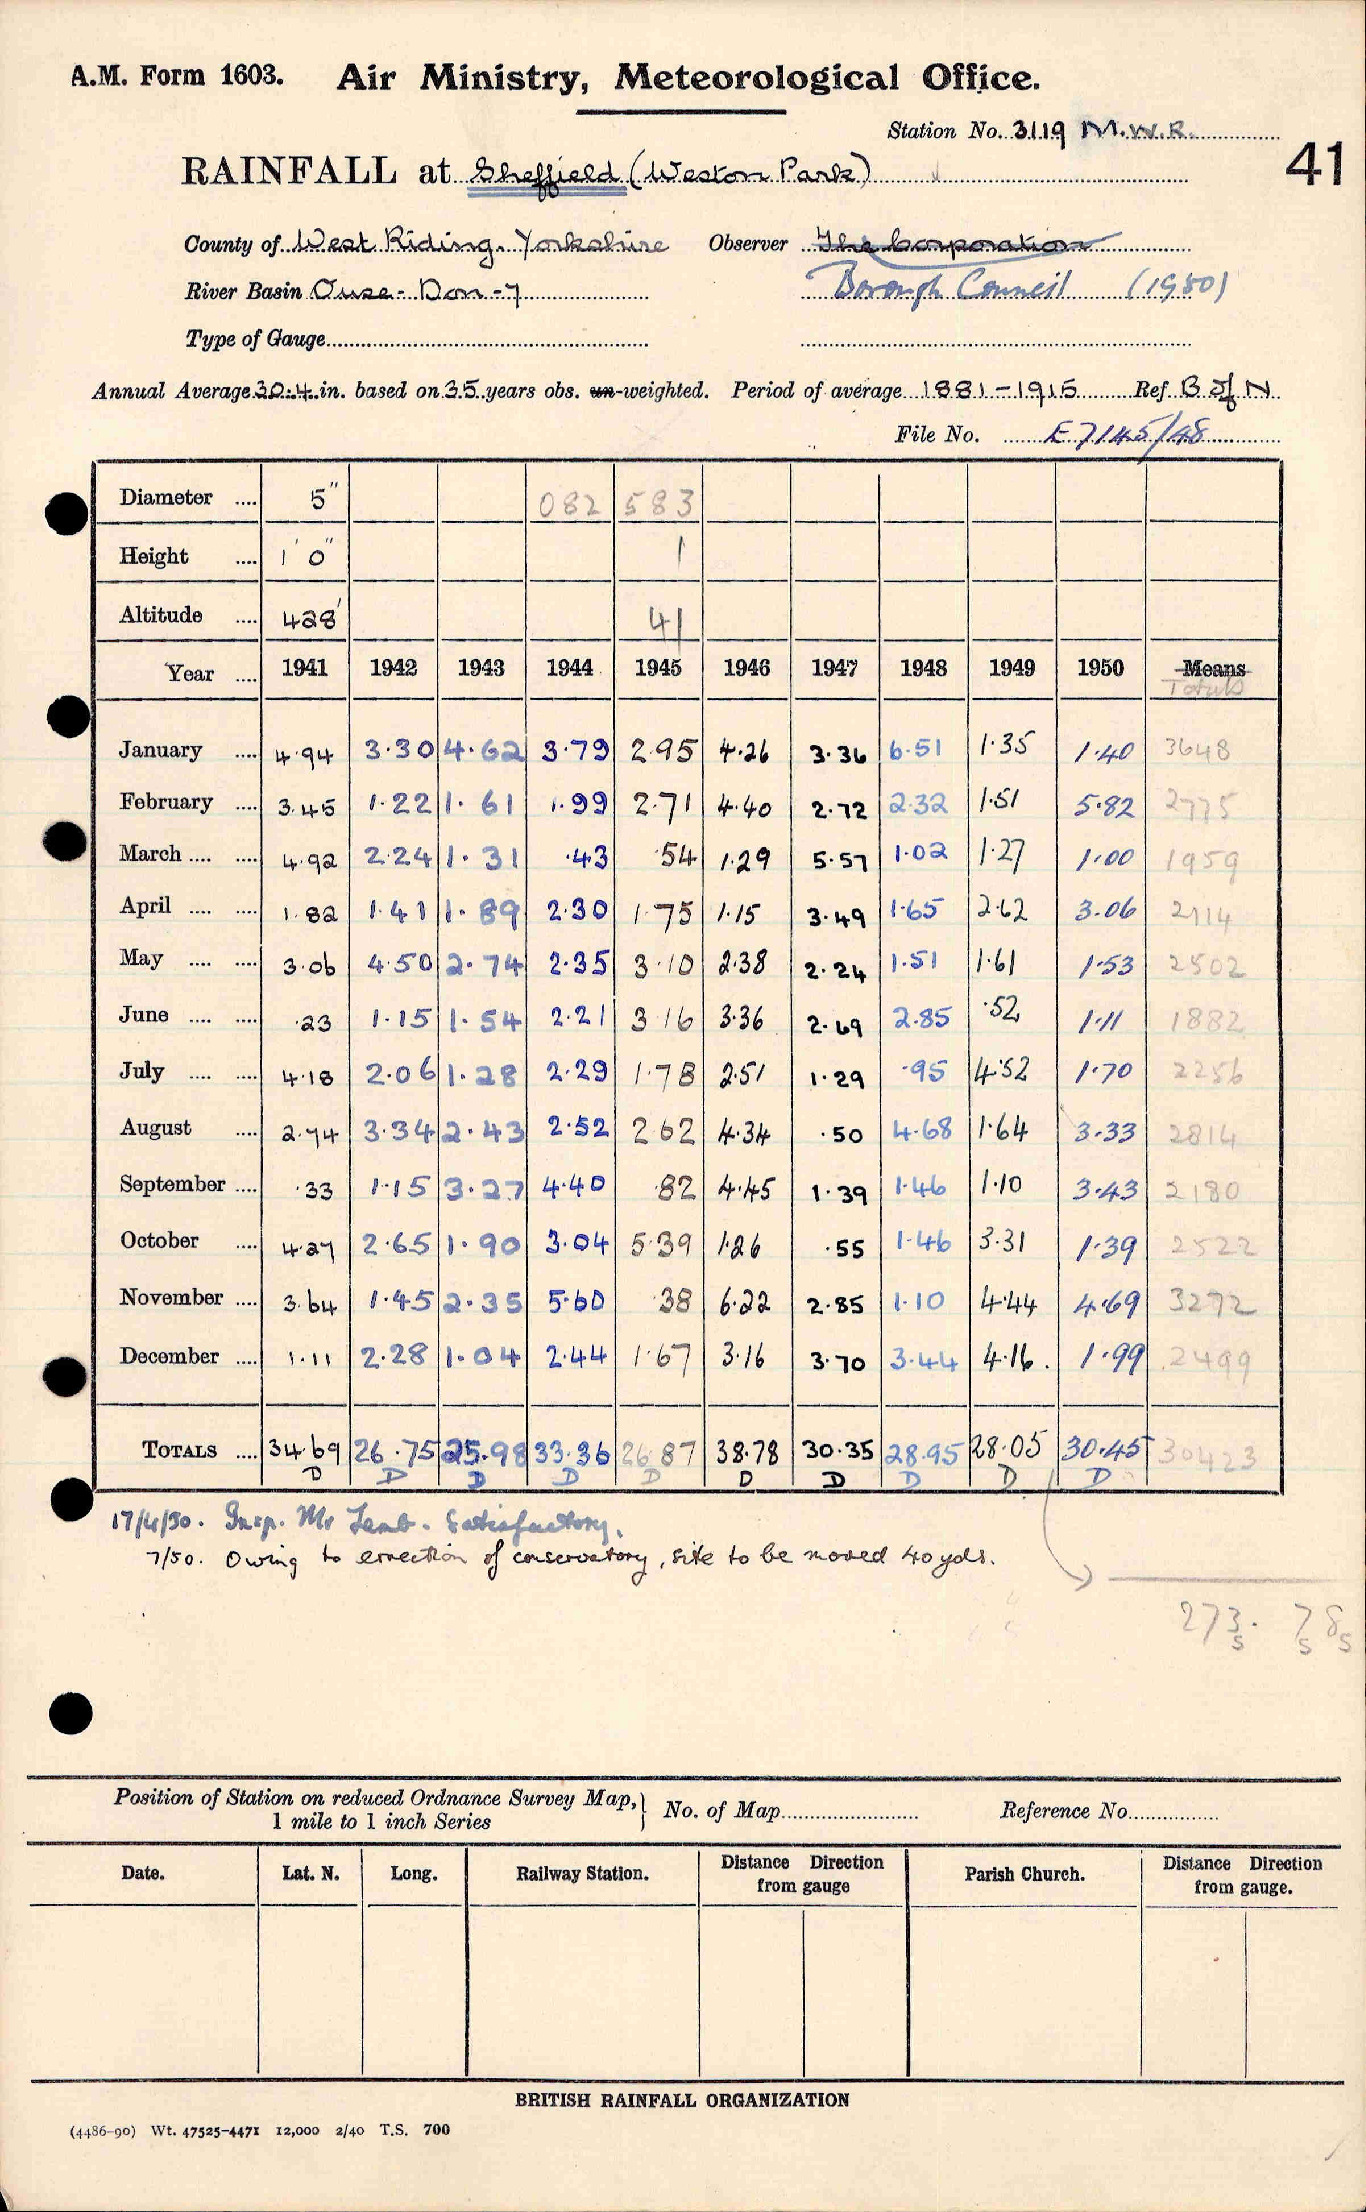 A.M. Form 1603. Air Ministry, Meteorological Office.
Station No. 3119 M.W.R.
41
RAINFALL at Sheffield (Weston Park)
County of West Riding. Yorkshire Observer The Corporation
River Basin Ouse - Don - 7 Borough Council (1950)
Type of Gauge
Annual Average 30.4 in. based on 35 years obs. un-weighted. Period of average 1881-1915 Ref. B of N
File No. E7145/48
Diameter .... 5" 082 583
Height .... 1' 0" 1
Altitude .... 428' 41
Year .... 1941 1942 1943 1944 1945 1946 1947 1948 1949 1950 Means
Totals
January .... 4.94 3.30 4.62 3.79 2.95 4.26 3.36 6.51 1.35 1.40 3648
February .... 3.45 1.22 1.61 1.99 2.71 4.40 2.72 2.32 1.51 5.82 2775
March .... .... 4.92 2.24 1.31 .43 .54 1.29 5.57 1.02 1.27 1.00 1959
April .... .... 1.82 1.41 1.89 2.30 1.75 1.15 3.49 1.65 2.62 3.06 2114
May .... .... 3.06 4.50 2.74 2.35 3.10 2.38 2.24 1.51 1.61 1.53 2502
June .... .... .23 1.15 1.54 2.21 3 16 3.36 2.69 2.85 .52 1.11 1882
July .... .... 4.18 2.06 1.28 2.29 1.78 2.51 1.29 .95 4.52 1.70 2256
August .... 2.74 3.34 2.43 2.52 2 62 4.34 .50 4.68 1.64 3.33 2814
September .... .33 1.15 3.27 4.40 .82 4.45 1.39 1.46 1.10 3.43 2180
October .... 4.27 2.65 1.90 3.04 5.39 1.26 .55 1.46 3.31 1.39 2522
November .... 3.64 1.45 2.35 5.60 .38 6.22 2.85 1.10 4.44 4.69 3272
December .... 1.11 2.28 1.04 2.44 1.67 3.16 3.70 3.44 4.16. 1.99 2499
TOTALS .... 34.69 26.75 25.98 33.36 26.87 38.78 30.35 28.95 28.05 30.45 30423
D D D D D D D D D D
17/4/50. Insp. Mr Lamb. Satisfactory.
7/50. Owing to erection of conservatory, site to be moved 40 yds.
273. 78
S S S
Position of Station on reduced Ordnance Survey Map, No. of Map Reference No.
1 mile to 1 inch Series
Date. Lat. N. Long. Railway Station. Distance Direction from gauge Parish Church. Distance Direction from gauge.
BRITISH RAINFALL ORGANIZATION
(4486-90) Wt. 47525-4471 12,000 2/40 T.S. 700